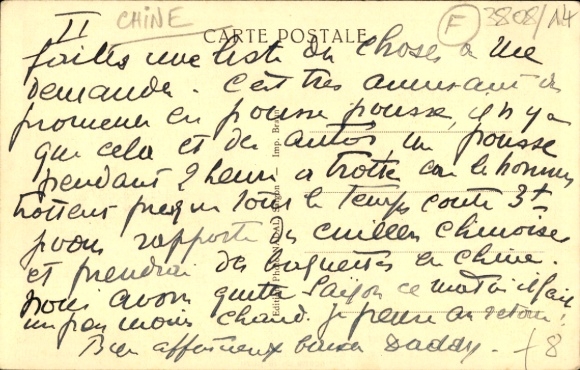 II CHINE F 3808/14
CARTE POSTALE
faites une liste des choses à me
demander. C'est très amusant de
promener en pousse pousse, il n'y a
que cela et des autos, un pousse
pendant 2 heures à trotter car les hommes
trottent presque tous le temps coute 3
je vous rapporte des cuillers chinoises
et prendrai des baguettes en Chine.
nous avons quitté Saigon ce matin il fait
un peu moins chaud. Je pense au retour!
Bien affectueux baiser Daddy. +8
Photo NADAL, Saigon - Imp. Braun